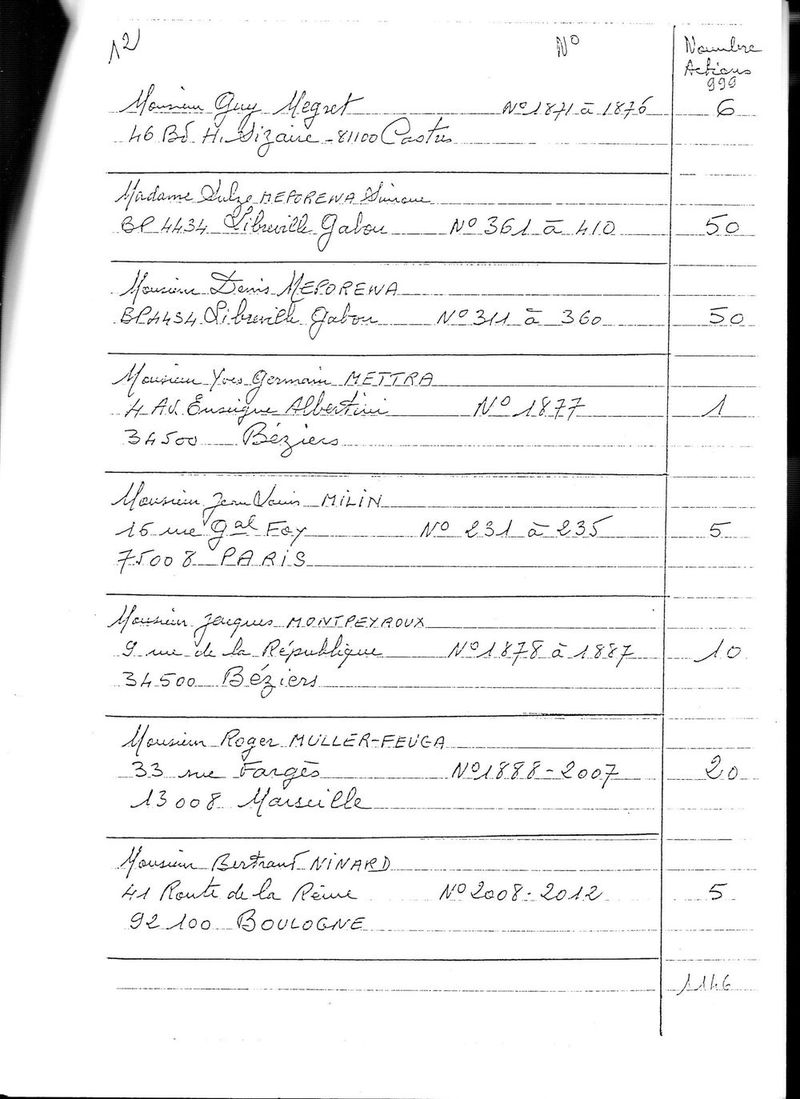 12
N° Nombre
Actions
999
Monsieur Guy Megret N° 1871 à 1876 6
46 Bd H. Sizaire - 81100 Castres
Madame MEPOREWA Simone
BP 4434 Libreville Gabon N° 361 à 410 50
Monsieur Denis MEPOREWA
BP 4434 Libreville Gabon N° 311 à 360 50
Monsieur Yves Germain METTRA
4 AV. Enseigne Albertini N° 1877 1
34500 Béziers
Monsieur Jean Louis MILIN
16 rue Gal Foy N° 231 à 235 5
75008 PARIS
Monsieur Jacques MONTPEYROUX
9 rue de la République N° 1878 à 1887 10
34500 Béziers
Monsieur Roger MULLER-FEUGA
33 rue Fargès N° 1888-2007 20
13008 Marseille
Monsieur Bertrand NINARD
41 Route de la Reine N° 2008-2012 5
92100 BOULOGNE
1146